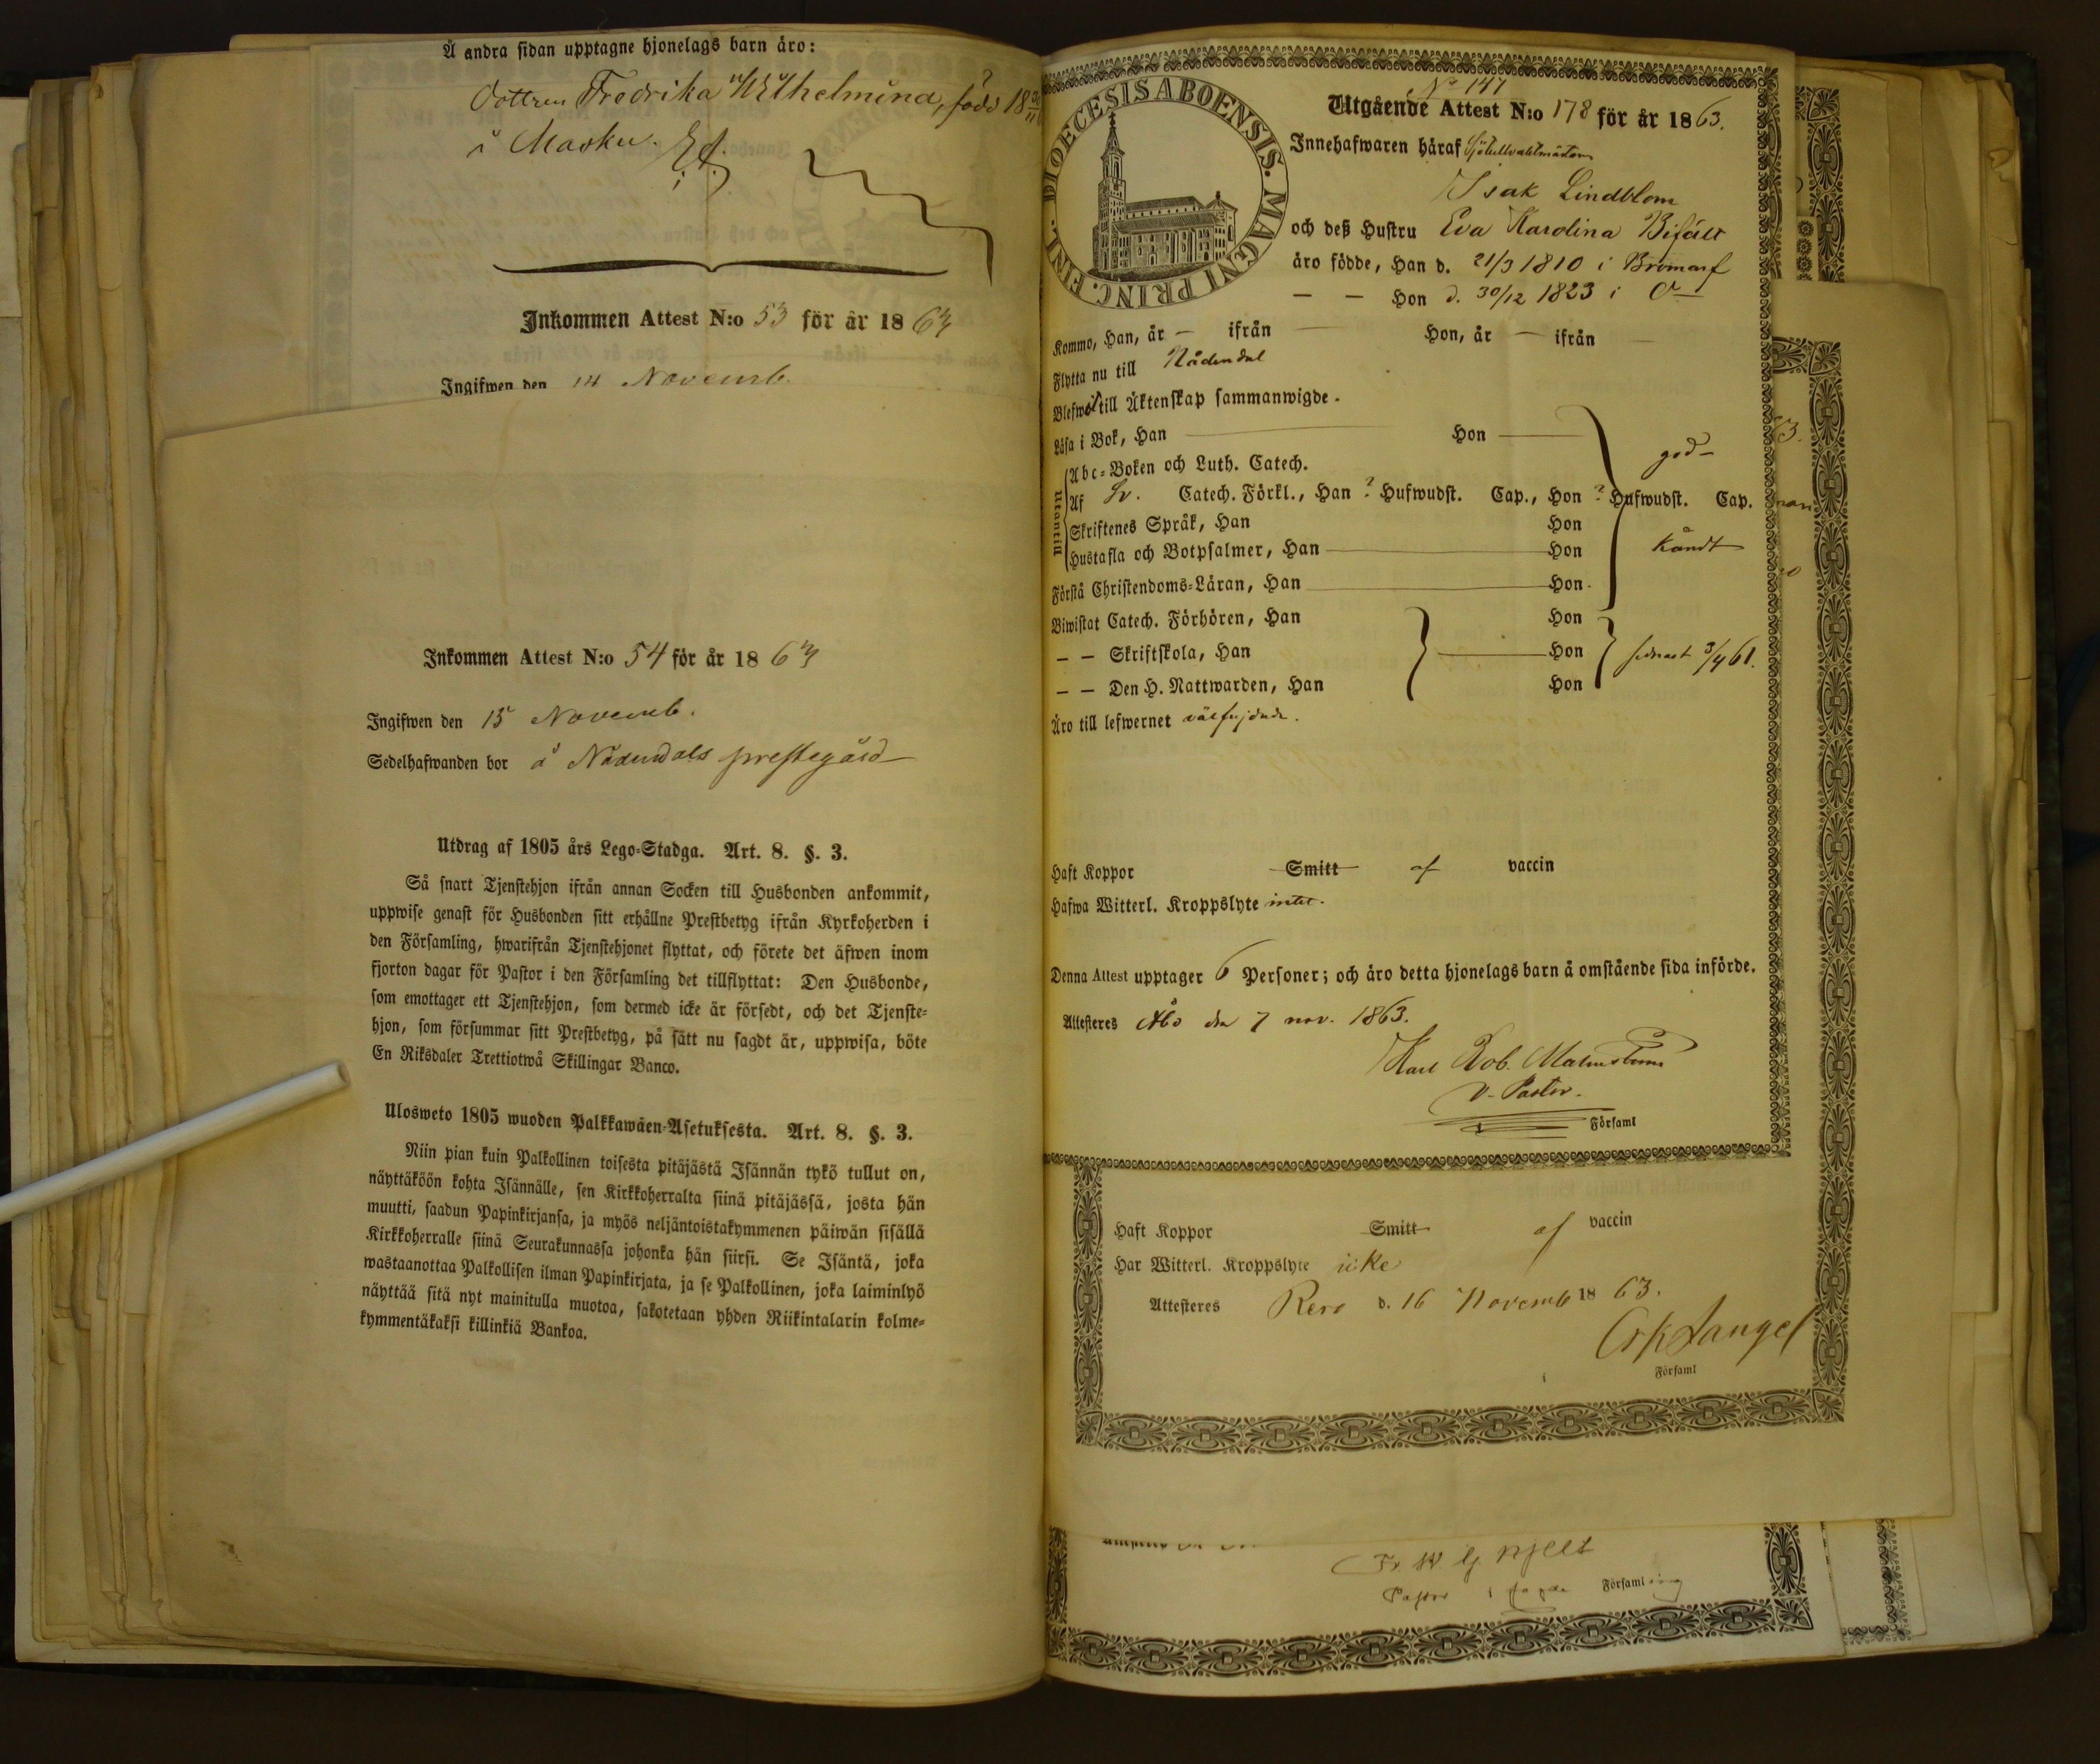 Å andra sidan upptagne hjonelags barn äro:
Dottren Fredrika Wilhelmina, född 18
i Masku.
Inkommen Attest N:o 53 för år 1863
Ingifwen den 14 Novemb.
Inkommen Attest N:o 54 för år 1863
Ingifwen den 15 Novemb.
Sedelhafwanden bor å Nådendals prestegård
Utdrag af 1805 års Lego-Stadga. Art. 8. §. 3.
Så snart Tjenstehjon ifrån annan Socken till Husbonden ankommit,
uppwise genast för Husbonden sitt erhållne Prestbetyg ifrån Kyrkoherden i
den Församling, hwarifrån Tjenstehjonet flyttat, och förete det äfwen inom
fjorton dagar för Pastor i den Församling det tillflyttat: Den Husbonde,
som emottager ett Tjenstehjon, som dermed icke är försedt, och det Tjenste-
hjon, som försummar sitt Prestbetyg, på sätt nu sagdt är, uppwisa, böte
En Riksdaler Trettiotwå Skillingar Banco.
Ulosweto 1805 wuoden Palkkawäen-Asetuksesta. Art. 8. §. 3.
Niin pian kuin Palkollinen toisesta pitäjästä Isännän tykö tullut on,
näyttäköön kohta Isännälle, sen Kirkkoherralta siinä pitäjässä, josta hän
muutti, saadun Papinkirjansa, ja myös neljäntoistakymmenen päiwän sisällä
Kirkkoherralle siinä Seurakunnassa johonka hän siirsi. Se Isäntä, joka
wastaanottaa Palkollisen ilman Papinkirjata, ja se Palkollinen, joka laiminlyö
näyttää sitä nyt mainitulla muotoa, sakotetaan yhden Riikintalarin kolme-
kymmentäkaksi killinkiä Bankoa.
DIOECESIS ABOENSIS. MAGNI PRINC. FINL.
N:o 147
Utgående Attest N:o 178 för år 1863.
Innehafwaren häraf Sjötullvaktmästaren
Isak Lindblom
och deß Hustru Eva Karolina Bifält
äro födde, Han d. 21/3 1810 i Bromarf
— — Hon d. 30/12 1823 i
Kommo, Han, år — ifrån — Hon, år — ifrån —
Flytta nu till Nådendal
Blefwo till Äktenskap sammanwigde.
Läsa i Bok, Han — Hon —
Utantill
Abc-Boken och Luth. Catech.
god-
Af Sv. Catech. Förkl., Han ? Hufwudst. Cap., Hon ? Hufwudst. Cap.
Skriftenes Språk, Han Hon
Hustafla och Botpsalmer, Han — Hon
kändt
Förstå Christendoms-Läran, Han — Hon
Biwistat Catech. Förhören, Han Hon
— — Skriftskola, Han — Hon sednast 3/4 61.
— — Den H. Nattwarden, Han Hon
Äro till lefwernet välfrejdade.
Haft Koppor Smitt af vaccin
Hafwa Witterl. Kroppslyte intet.
Denna Attest upptager 6 Personer; och äro detta hjonelags barn å omstående sida införde.
Attesteres Åbo den 7 nov. 1863.
Karl Rob. Malmström
V. Pastor.
Församl
Haft Koppor Smitt af vaccin
Har Witterl. Kroppslyte icke
Attesteres Reso d. 16 Novemb 1863.
Langel
Församl
Pastor i Församling